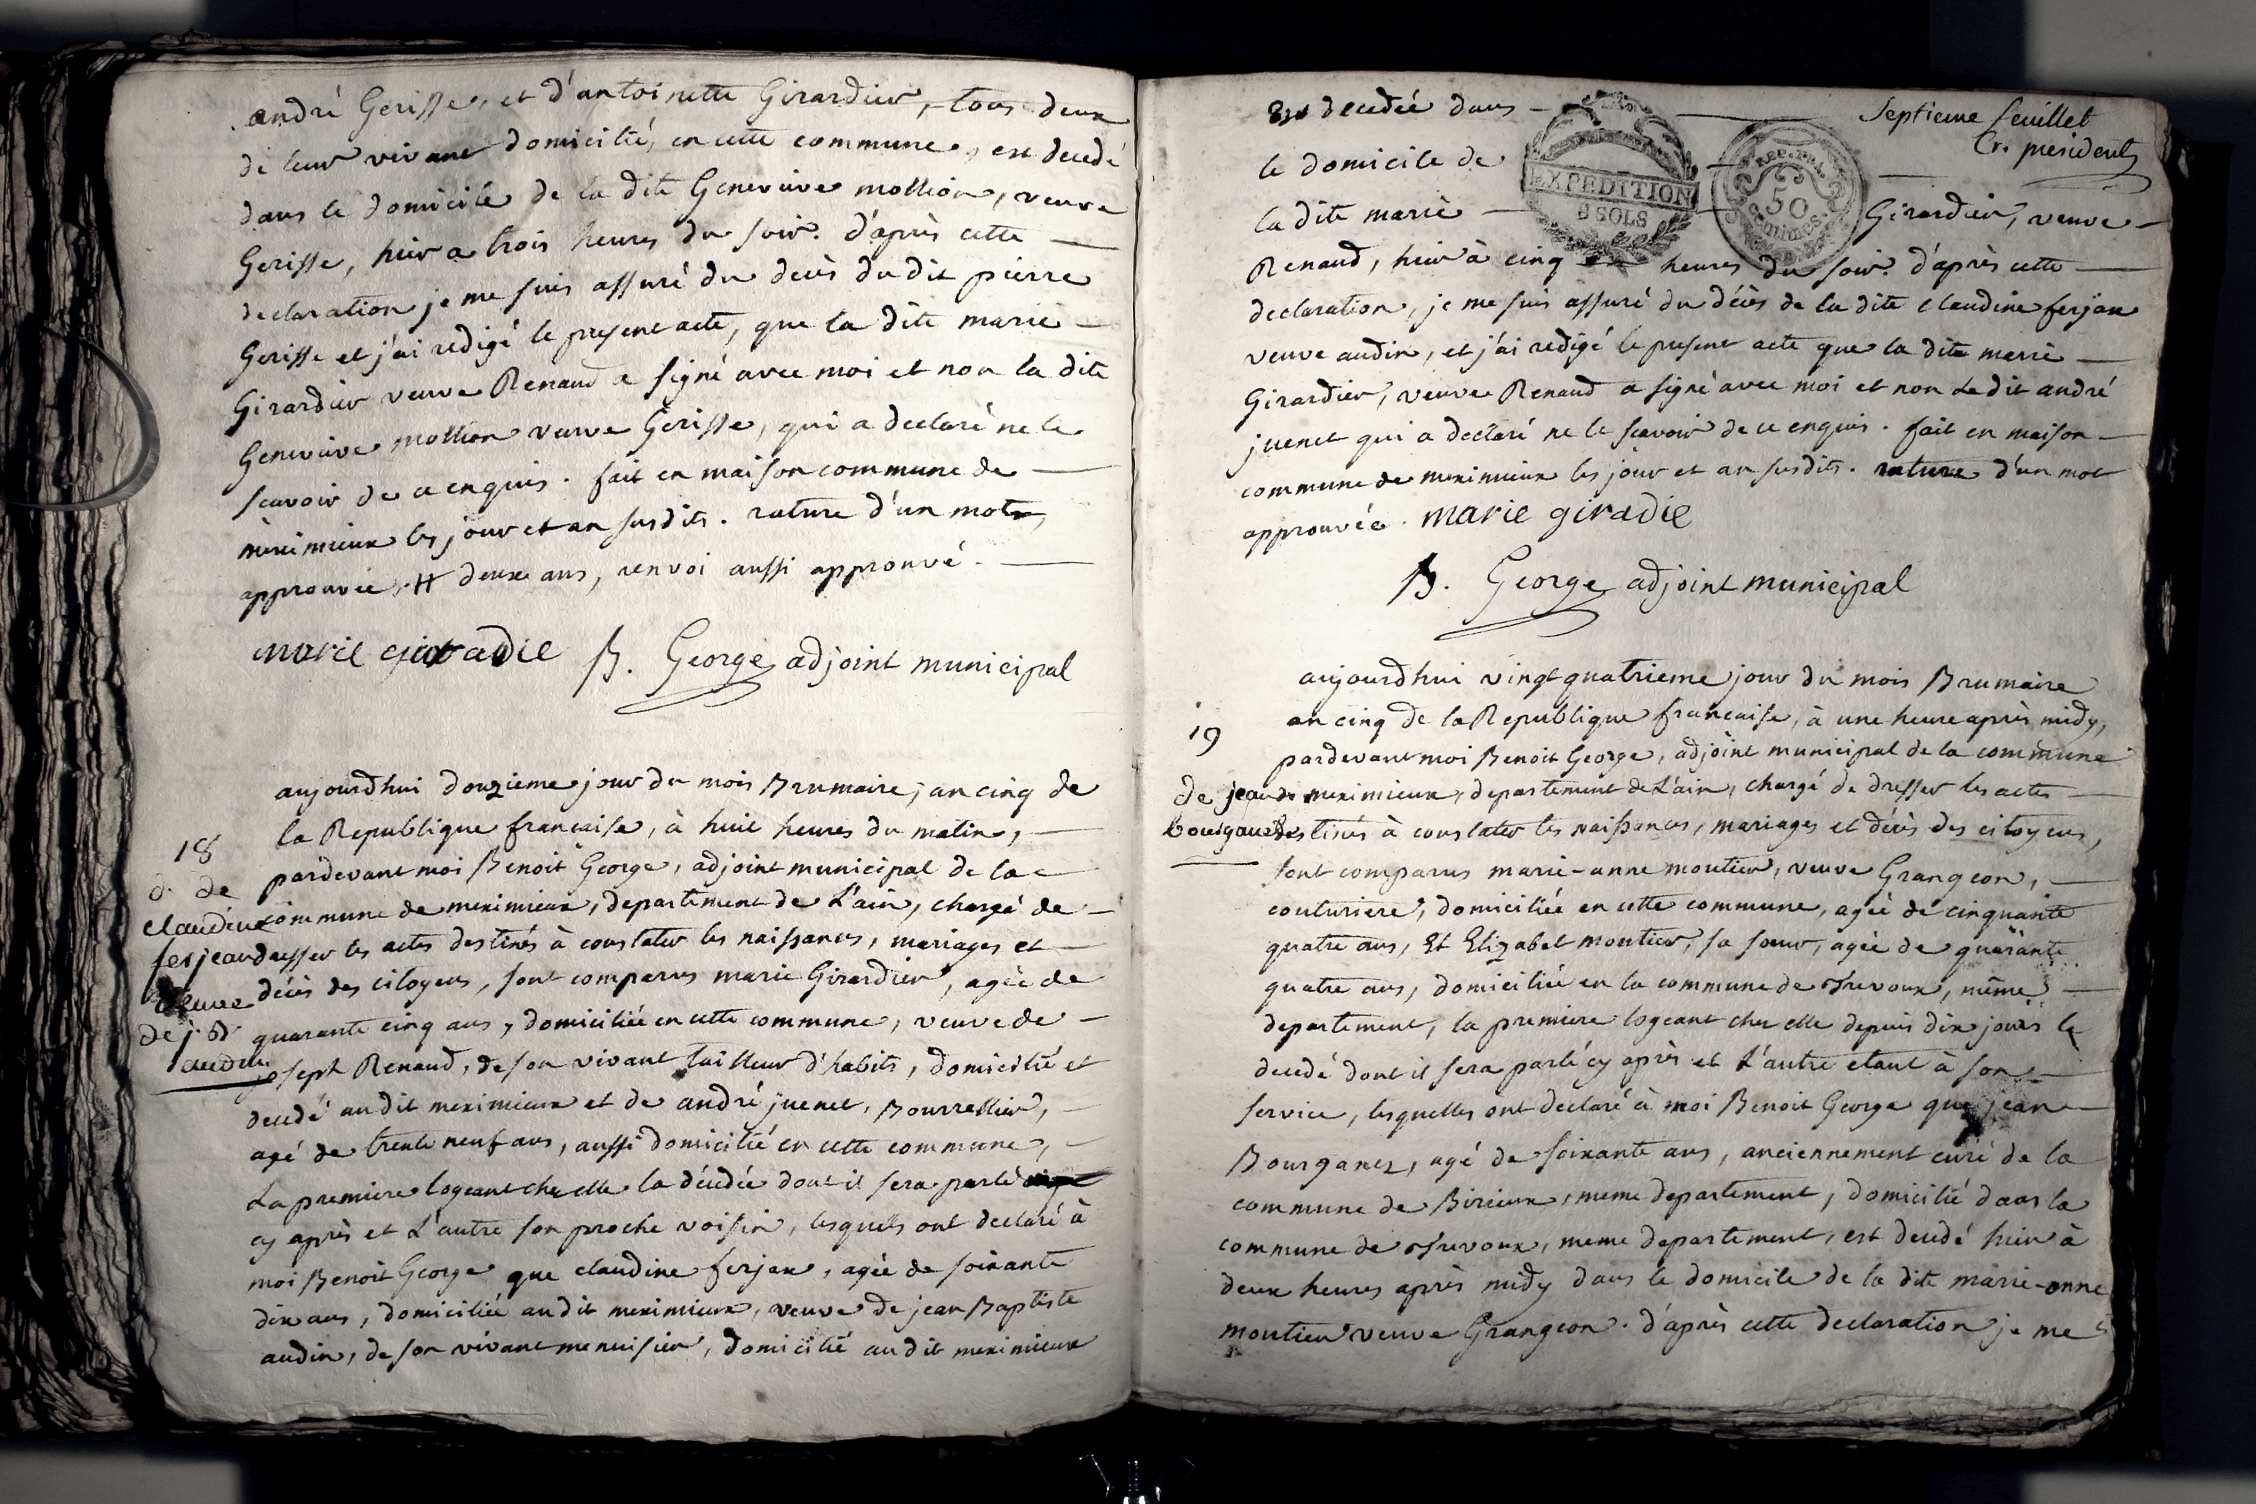 andré Gerisse, et d'antoinette Girardier, tous deux
de leur vivant domicilié, en cette commune, est decedé
dans le domicile de la dite Genevieve mollion, veuve
Gerisse, hier a trois heures du soir. d'après cette
declaration je me suis assuré du decès du dit pierre
Gerisse et j'ai redigé le present acte, que la dite marie
Girardier veuve Renaud a signé avec moi et non la dite
Genevieve mollion veuve Gerisse, qui a declaré ne le
scavoir de ce enquis. fait en maison commune de
meximieux les jour et an susdits. rature d'un mot,
approuvée. # deux ans, renvoi aussi approuvé.
marie giradie B. George adjoint municipal
18
d. de
claudine
ferjean
veuve
de j. B
audin
aujourdhui douzieme jour du mois Brumaire, an cinq de
la Republique francaise, à huit heures du matin,
pardevant moi Benoit George, adjoint municipal de la
commune de meximieux, departement de L'ain, chargé de
dresser les actes destinés à constater les naissances, mariages et
décès des citoyens, sont comparus marie Girardier, agée de
quarante cinq ans, domiciliée en cette commune, veuve de
joseph Renaud, de son vivant tailleur d'habits, domicilié et
decedé au dit meximieux et de andré juenet, Bourrellier,
agé de trente neuf ans, aussi domicilié en cette commune,
La premiere logeant che elle la décédée dont il sera parlé
cy après et L'autre son proche voisin, lesquels ont declaré à
moi Benoit George que claudine ferjean, agée de soixante
dix ans, domiciliée au dit meximieux, veuve de jean Baptiste
audin, de son vivant menuisier, domicilié au dit meximieux
Septieme feuillet
Cr. président
Est decedée dans
le domicile de
la dite marie Girardier, veuve
EXPEDITION
9 SOLS
REP. FRA.
50
centimes
Renaud, hier à cinq heures du soir. d'après cette
declaration, je me suis assuré du décès de la dite claudine ferjean
veuve audin, et j'ai redigé le present acte que la dite marie
Girardier, veuve Renaud a signé avec moi et non Le dit andré
juenet qui a declaré ne le scavoir de ce enquis. fait en maison
commune de meximieux les jour et an susdits. rature d'un mot
approuvée. marie giradie
B. George adjoint municipal
19
de jean
bourganet
aujourdhui vingt quatrieme jour du mois Brumaire
an cinq de la Republique francaise, à une heure après midy,
pardevant moi Benoit George, adjoint municipal de la commune
de meximieux, departement de L'ain, chargé de dresser les actes
destinés à constater les naissances, mariages et décès des citoyens,
sont comparus marie-anne moutier, veuve Grangeon,
couturiere, domiciliée en cette commune, agée de cinquante
quatre ans, Et Elizabet moutier, sa soeur, agée de quarante
quatre ans, domiciliée en la commune de Trevoux, même
departement, la premiere logeant chez elle depuis dix jours le
decedé dont il sera parlé cy après et L'autre etant à son
service, lesquelles ont declaré à moi Benoit George que jean
Bourganez, agé de soixante ans, anciennement curé de la
commune de Birieux, meme departement, domicilié dans la
commune de Trevoux, meme departement, est decedé hier à
deux heures après midy dans le domicile de la dite marie-anne
moutier veuve Grangeon. d'après cette declaration je me